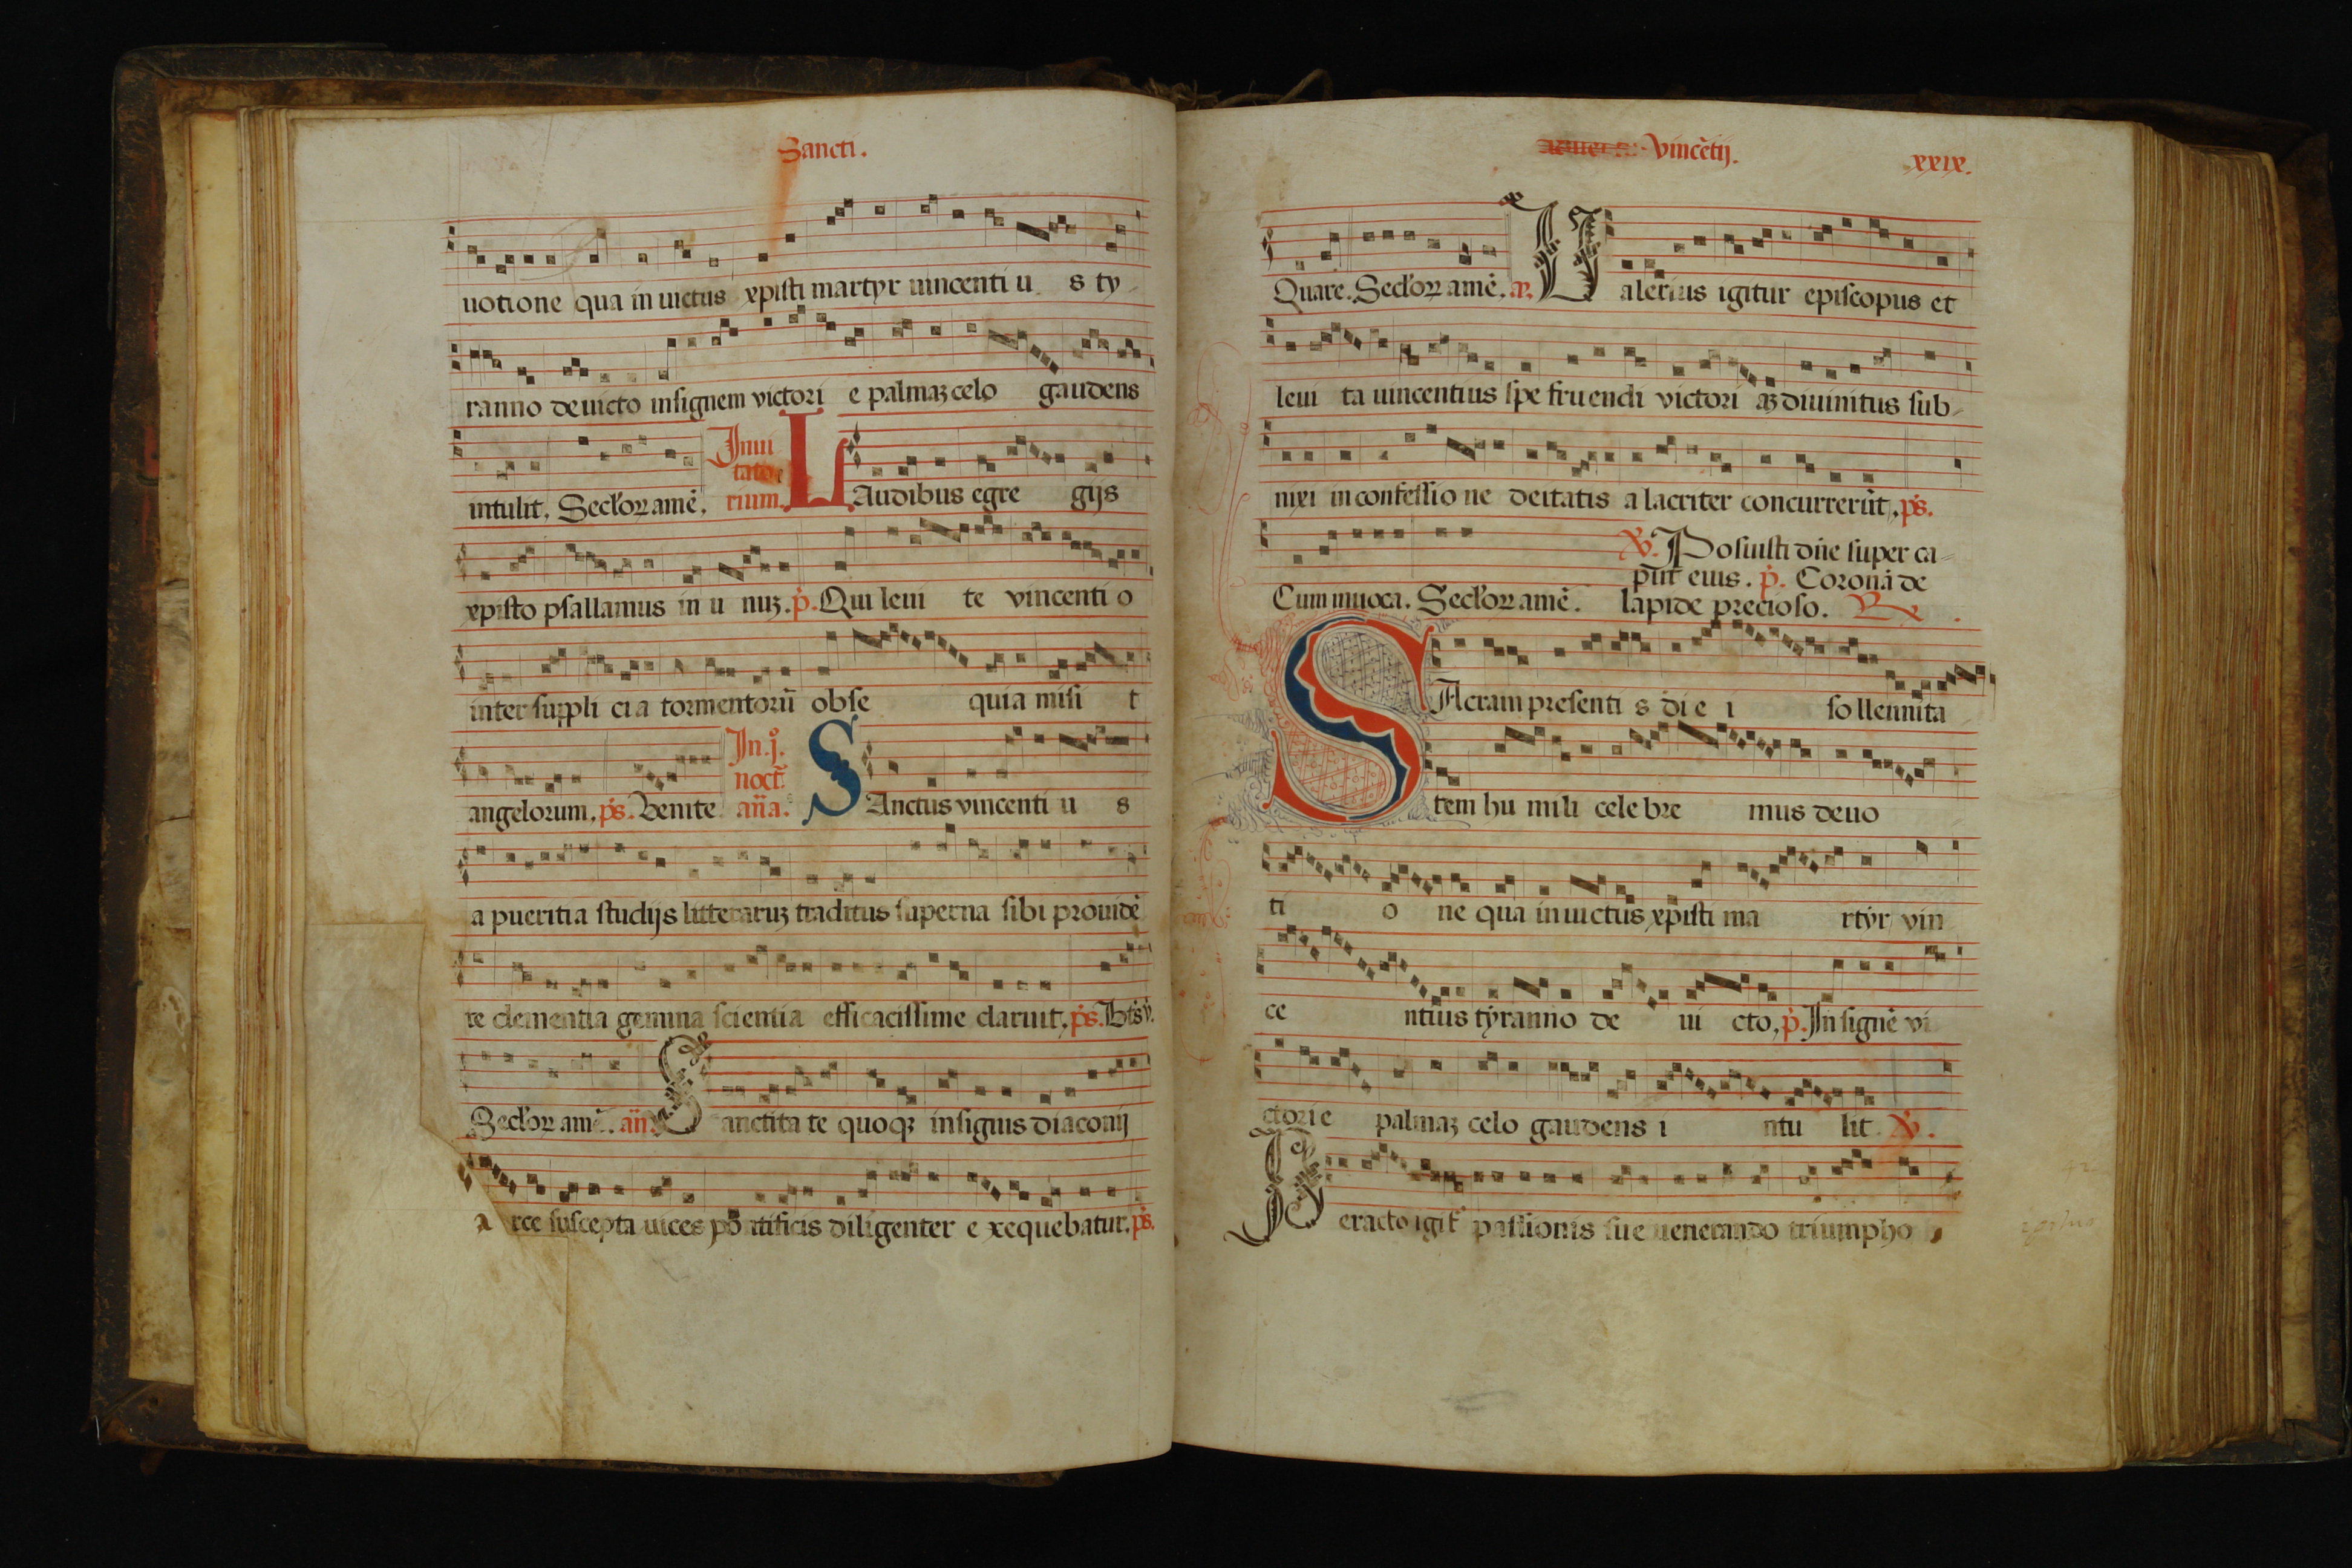 Sancti.
uotione qua in uictus xpisti martyr uincenti u s ty-
ranno deuicto insignem victori e palmaz celo gaudens
intulit. Seclorz amē. Inui
tato
rium. LAudibus egre gijs
xpisto psallamus in u nuz. p̄. Qui leui te vincenti o
inter suppli ci a tormentorū obse quia misi t
angelorum. ps. Venite. In .j.
noct.
an̄a. SAnctus vincenti u s
a pueritia studijs litteraruz traditus superna sibi prouidē
te clementia gemina scientia efficacissime claruit. ps. Bt̄s v.
Seclorz amē. an̄. Sanctita te quoqz insignis diaconij
a rce suscepta uices pō tificis diligenter e xequebatur. ps.
Vincētij. xxix.
Quare. Seclorz amē. an̄. Ualerius igitur episcopus et
leui ta uincentius spe fruendi victori az diuinitus sub-
nixi in confessio ne deitatis a lacriter concurrerūt. ps.
Cum inuoca. Seclorz amē. V. Posuisti dn̄e super ca-
put eius. p̄. Coronā de
lapide precioso. R
SAcram presenti s di e i so llennita
tem hu mili cele bre mus deuo
ti o ne qua inuictus xpisti ma rtyr vin
ce ntius tyranno de ui cto. p̄. Insignē vi
ctori e palmaz celo gaudens i ntu lit. V.
Peracto igit passionis sue uenerando triumpho